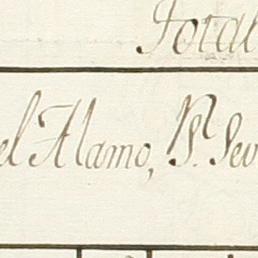 Total
el Alamo, P.r Sev